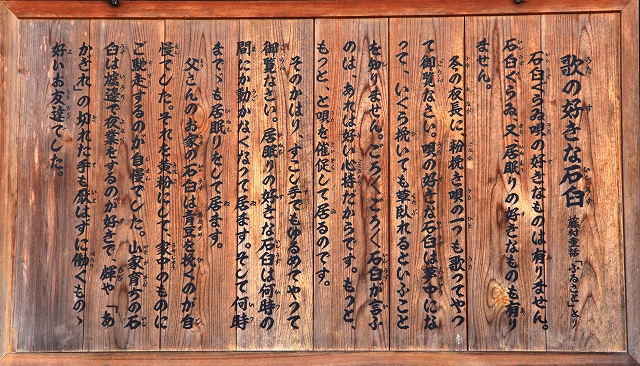 歌の好きな石臼 藤村童話「ふるさと」より
石臼ぐらゐ唄の好きなものは有りません。
石臼ぐらゐ、又、居眠りの好きなものも有り
ません。
冬の夜長に、粉挽き唄の一つも歌つてやつ
て御覧なさい。唄の好きな石臼は夢中にな
つて、いくら挽いても草臥れるといふこと
を知りません。ごろ〱ごろ〱石臼が言ふ
のは、あれは好い心持だからです。もつと、
もつと、と唄を催促して居るのです。
そのかはり、すこし手でもゆるめてやつて
御覧なさい。居眠りの好きな石臼は何時の
間にか動かなくなつて居ます。そして何時
までゝも居眠りをして居ます。
父さんのお家の石臼は青豆を挽くのが自
慢でした。それを黄粉にして、家中のものに
ご馳走するのが自慢でした。山家育ちの石
臼は爐邊で夜業をするのが好きで、皸や「あ
かぎれ」の切れた手も厭はずに働くものゝ
好いお友達でした。